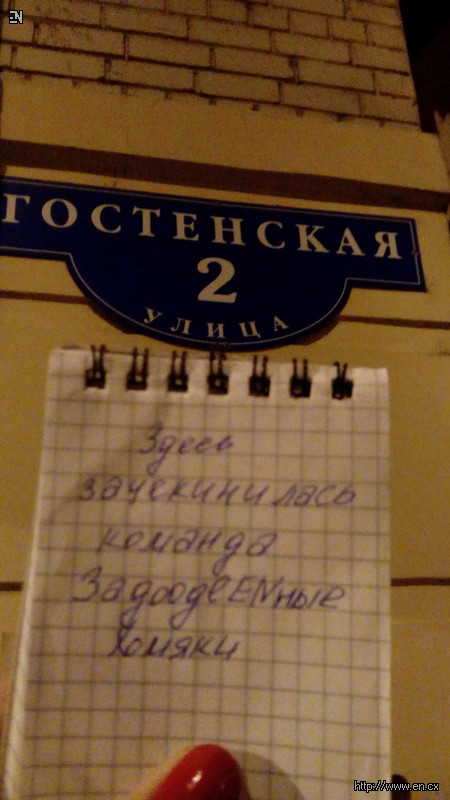 EN
ГОСТЕНСКАЯ
2
УЛИЦА
Здесь
зачекинилась
команда
ЗадоодеENные
хомяки
http://www.en.cx